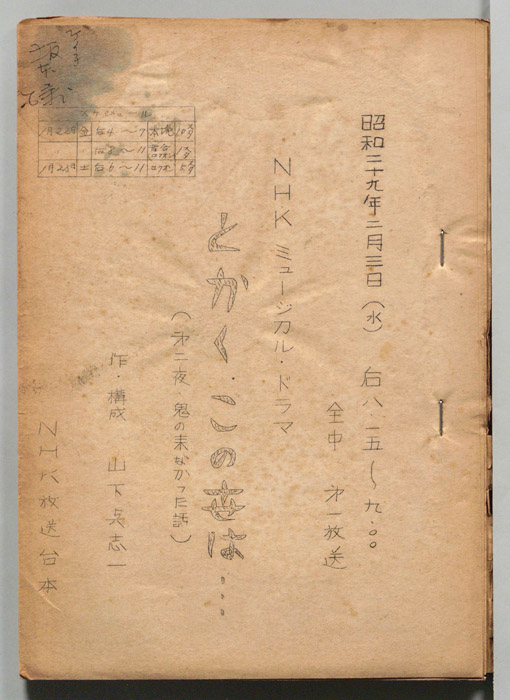 昭和二十九年二月三日（水）　后八.一五～九.〇〇
全中　第一放送
NHKミュージカル・ドラマ
とかく・この世は…
（第二夜　鬼の来なかった話）
作・構成　山下
NHK放送台本
スケジュール
1月22日 金 后4～7
1月23日 土 后6～11